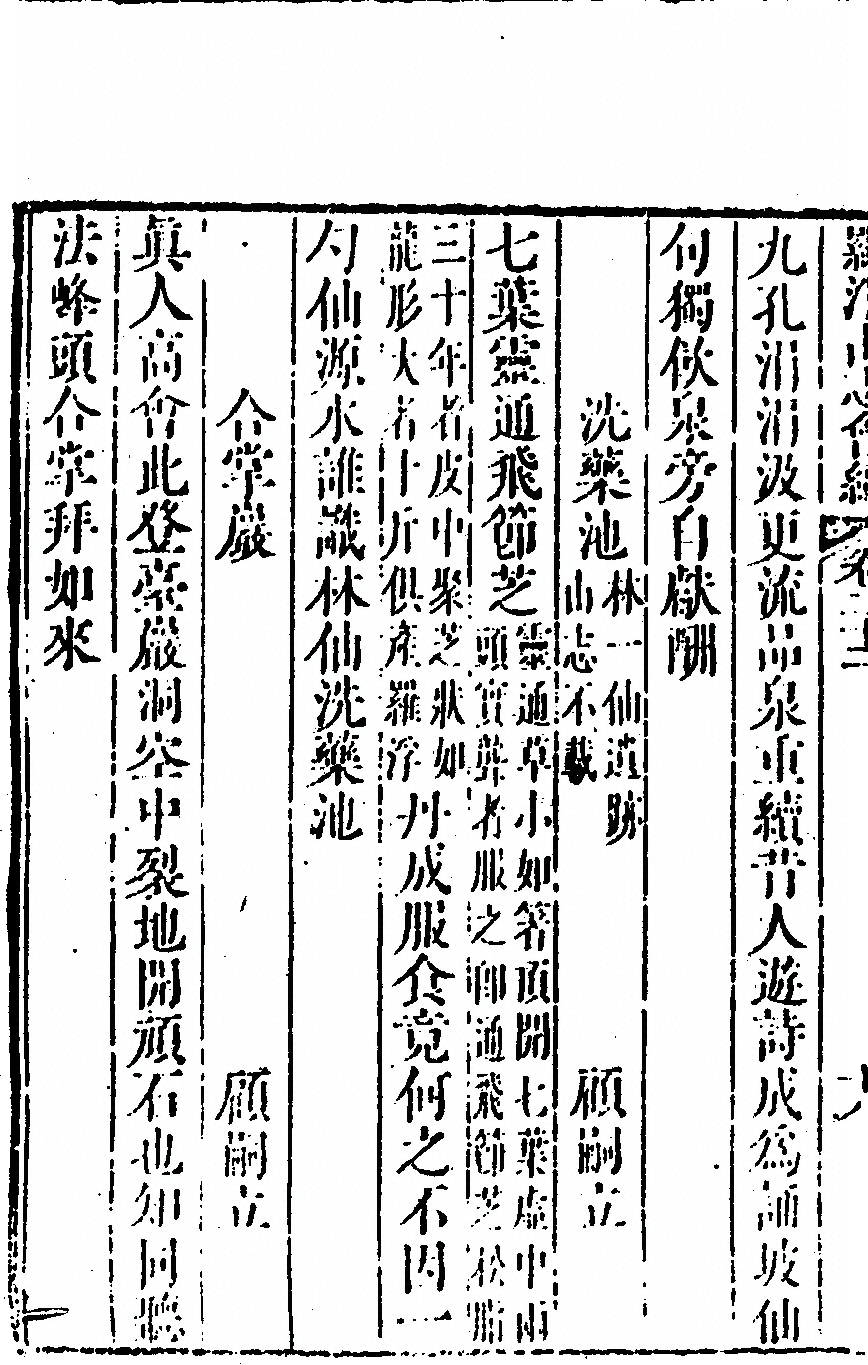 九孔涓涓汲更流品泉重續昔人遊詩成為誦坡仙
句獨飲泉旁自獻酬
洗藥池 林一仙遺跡山志不載 顧嗣立
七葉靈通飛節芝 靈通草小如箸頂開七葉虛中而頭實聾者服之卽通飛節芝松脂
三十年者皮中聚芝狀如龍形大者十斤俱產羅浮 丹成服食竟何之不因一
勺仙源水誰識林仙洗藥池
合掌巖 顧嗣立
眞人高會此登臺巖洞空中裂地開頑石也知同聽
法峰頭合掌拜如來